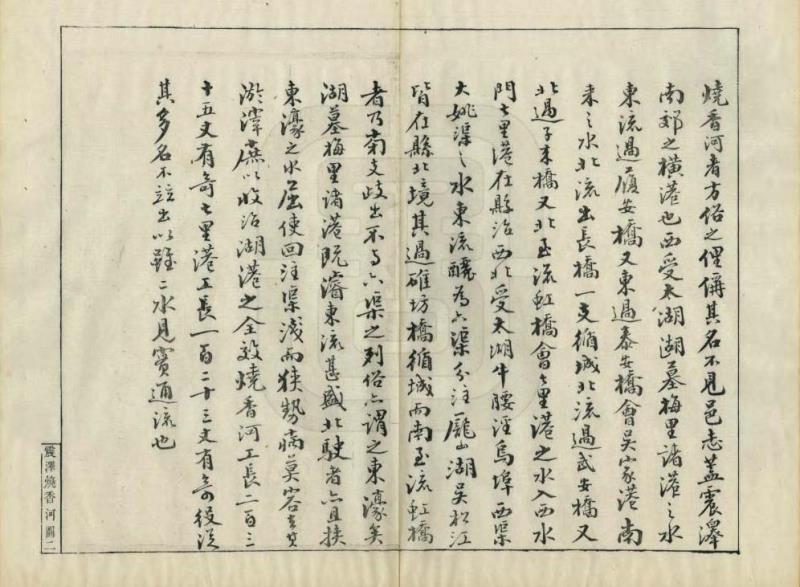 燒香河者方俗之俚偁其名不見邑志蓋震澤
南郊之橫港也西受太湖湖墓梅里諸港之水
東流過履安橋又東過泰安橋會吳家港南
來之水北流出長橋一支循城北流過武安橋又
北過子來橋又北至流虹橋會七里港之水入西水
門七里港在縣治西北受太湖牛腰涇烏埠西渠
大姚渠之水東流釃為六渠分注龐山湖吳松江
皆在縣北境其過碓坊橋循城而南至流虹橋
者乃南支歧出不與六渠之列俗亦謂之東濠矣
湖墓梅里諸港既濬東流甚盛北駛者亦且挾
東濠之水屈使回注渠淺而狹勢怖莫容
淤滓廡以收治湖港之全效燒香河工長二百三
十五丈有奇七里港工長一百二十三丈有奇役從
其多名不竝出以雖二水見實通流也
震澤燒香河圖二